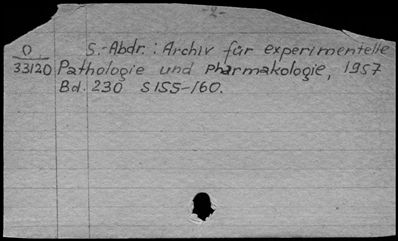 -2-
O
33120
S.-Abdr.: Archiv für experimentelle
Pathologie und Pharmakologie, 1957
Bd. 230 S 155-160.